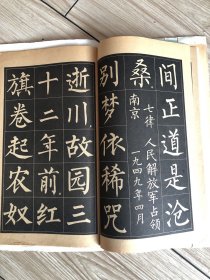 间正道是沧
桑
七律 人民解放军占领
南京
一九四九年四月
别梦依稀咒
逝川故园三
十二年前红
旗卷起农奴